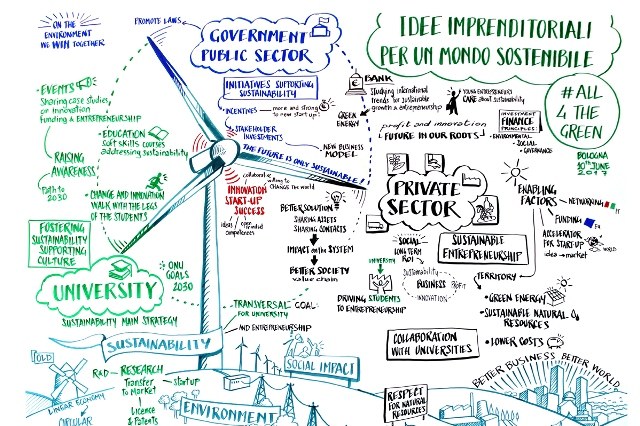 ON THE
ENVIRONMENT
WE WIN TOGETHER
PROMOTE LAWS
GOVERNMENT
PUBLIC SECTOR
IDEE IMPRENDITORIALI
PER UN MONDO SOSTENIBILE
#ALL
4 THE
GREEN
BOLOGNA
10TH JUNE
2017
EVENTS
Sharing case studies
on innovation
Funding & ENTREPRENEURSHIP
EDUCATION
soft skills courses
addressing sustainability
RAISING
AWARENESS
Path to
2030
CHANGE AND INNOVATION
WALK WITH THE LEGS
OF THE STUDENTS
FOSTERING
SUSTAINABILITY
SUPPORTING
CULTURE
ONU
GOALS
2030
UNIVERSITY
SUSTAINABILITY MAIN STRATEGY
INITIATIVES SUPPORTING
SUSTAINABILITY
INCENTIVES
more and strong
to new start ups!
STAKEHOLDER
INVESTMENTS
NEW BUSINESS
MODEL
THE FUTURE IS ONLY SUSTAINABLE!
collaborative
willing to
CHANGE THE WORLD
INNOVATION
START-UP
SUCCESS
ideas
competences
BETTER SOLUTION
SHARING ASSETS
SHARING CONTACTS
IMPACT ON THE SYSTEM
BETTER SOCIETY
value chain
TRANSVERSAL GOAL
FOR UNIVERSITY
AND ENTREPRENEURSHIP
BANK
Studying international
trends for sustainable
growth & entrepreneurship
GREEN
ENERGY
YOUNG ENTREPRENEURS
CARE about sustainability
profit and innovation
FUTURE IN OUR ROOTS
INVESTMENT
FINANCE
PRINCIPLES:
- ENVIRONMENTAL
- SOCIAL
- GOVERNANCE
PRIVATE
SECTOR
ENABLING
FACTORS
NETWORKING
FUNDING
ACCELERATOR
FOR START UP
idea → market
WORLD
SOCIAL
LONG TERM
ROI
SUSTAINABLE
ENTREPRENEURSHIP
UNIVERSITY
DRIVING STUDENTS
TO ENTREPRENEURSHIP
Sustainability
BUSINESS PROFIT
INNOVATION
TERRITORY
GREEN ENERGY
SUSTAINABLE NATURAL
RESOURCES
LOWER COSTS
COLLABORATION
WITH UNIVERSITIES
SUSTAINABILITY
OLD
LINEAR ECONOMY
CIRCULAR
R&D → RESEARCH
Transfer
to Market
startup
Licence &
Patents
SOCIAL IMPACT
ENVIRONMENT
RESPECT
FOR NATURAL
RESOURCES
BETTER BUSINESS BETTER WORLD